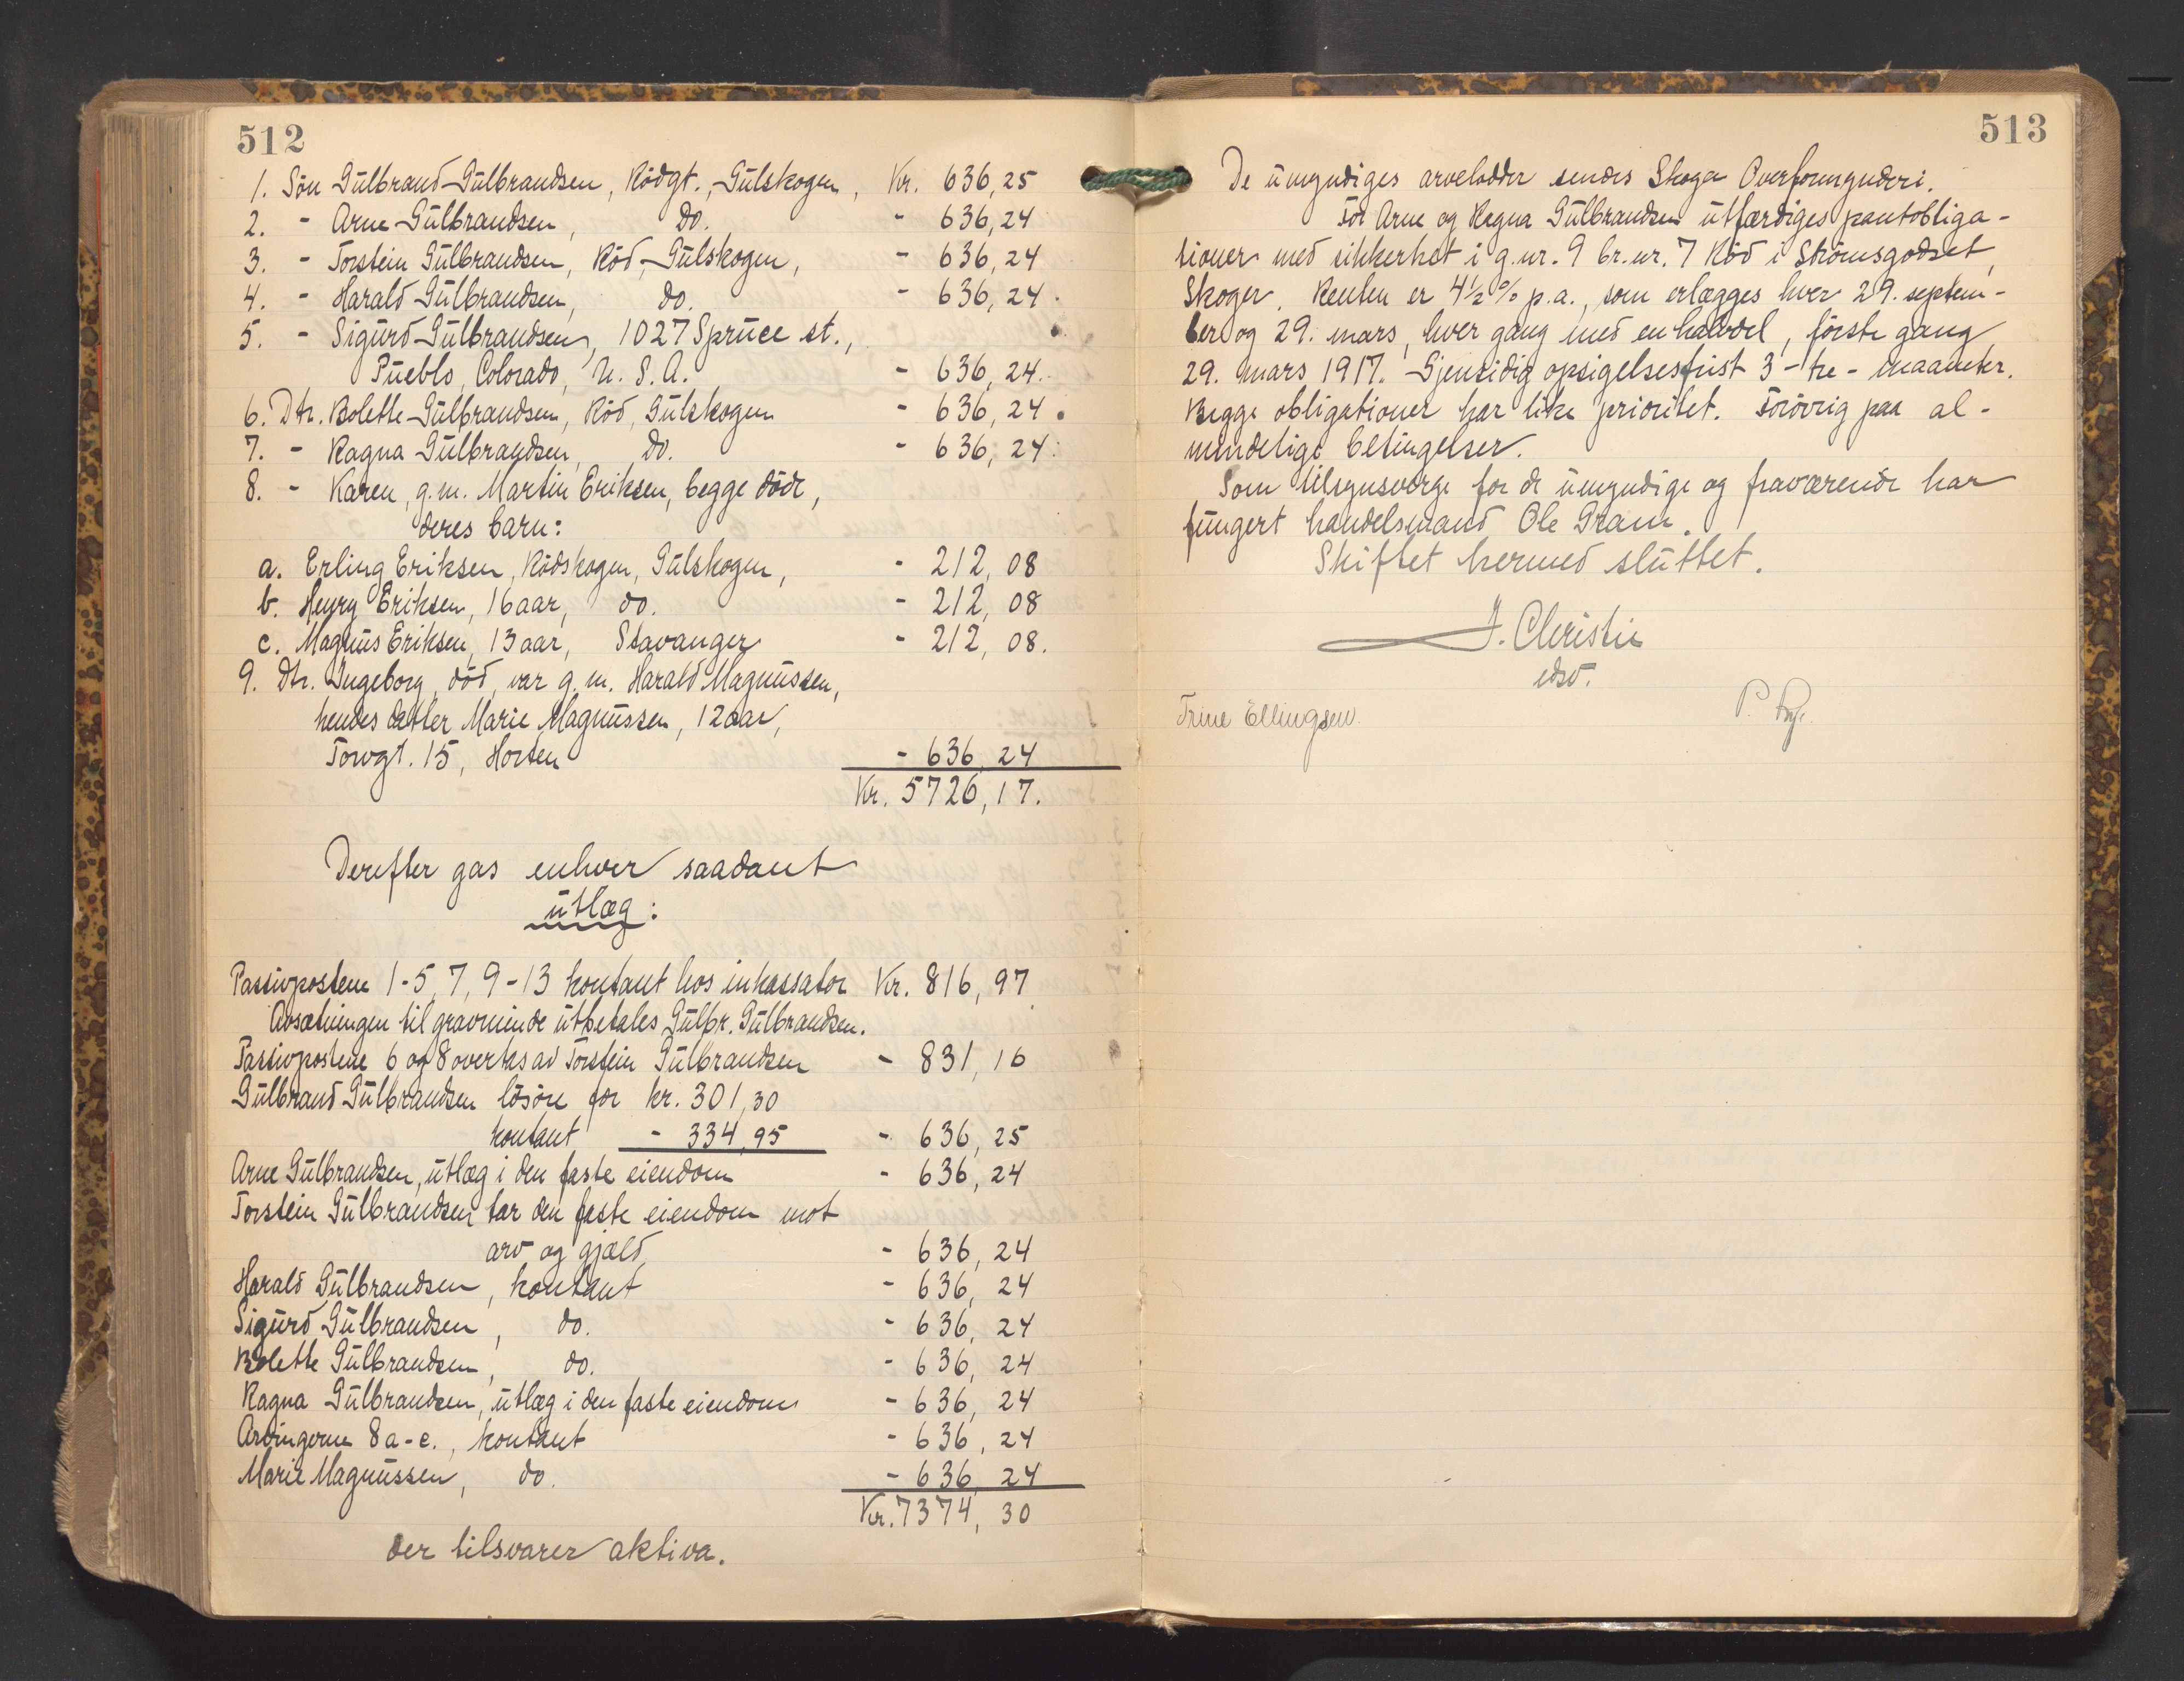 512
1. Søn Gulbrand Gulbrandsen, Rødgt., Gulskogen, Kr. 636,25
2. - Arne Gulbrandsen, do. - 636,24
3. - Torstein Gulbrandsen, Rød, Gulskogen, - 636,24
4. - Harald Gulbrandsen, do. - 636,24.
5. - Sigurd Gulbrandsen, 1027 Spruce st.,
Pueblo, Colorado, U. S. A. - 636,24.
6. Dtr. Bolette Gulbrandsen, Rød, Gulskogen - 636,24.
7. - Ragna Gulbrandsen, do. - 636,24.
8. - Karen, g.m. Martin Eriksen, begge døde,
deres barn:
a. Erling Eriksen, Rødskogen, Gulskogen, - 212,08
b. Henry Eriksen, 16 aar, do. - 212,08
c. Magnus Eriksen, 13 aar, Stavanger - 212,08.
9. Dtr. Ingeborg, død, var g.m. Harald Magnussen,
hendes datter Marie Magnussen, 12 aar,
Torvgt. 15, Horten - 636,24
Kr. 5726,17.
Derefter gas enhver saadant
utlæg:
Passivpostene 1-5, 7, 9-13 kontant hos inkassator Kr. 816,97
Avsætningen til gravminde utbetales Gulbr. Gulbrandsen.
Passivpostene 6 og 8 overtas av Torstein Gulbrandsen - 831,16
Gulbrand Gulbrandsen løsøre for kr. 301,30
kontant - 334,95 - 636,25
Arne Gulbrandsen, utlæg i den faste eiendom - 636,24
Torstein Gulbrandsen tar den faste eiendom mot
arv og gjæld, - 636,24
Harald Gulbrandsen, kontant - 636,24
Sigurd Gulbrandsen, do. - 636,24
Bolette Gulbrandsen, do. - 636,24
Ragna Gulbrandsen, utlæg i den faste eiendom - 636,24
Arvingerne 8 a-c., kontant - 636,24
Marie Magnussen, do. - 636,24
Kr. 7374,30
der tilsvarer aktiva.
513
De umyndiges arvelodder sendes Skoger Overformynderi.
For Arne og Ragna Gulbrandsen utfærdiges pantobliga-
tioner med sikkerhet i g.nr. 9 br.nr. 7 Rød i Strømsgodset,
Skoger. Renten er 4½ % p.a., som erlægges hver 29. septem-
ber og 29. mars, hver gang med en halvdel, første gang
29. mars 1917. Gjensidig opsigelsesfrist 3 - tre - maaneter.
Begge obligationer har like prioritet. Forøvrig paa al-
mindelige betingelser.
Som tilsynsverge for de umyndige og fraværende har
fungert handelsmand Ole Gram.
Skiftet hermed sluttet.
J. Christie
edsv.
Trine Ellingsen. P.